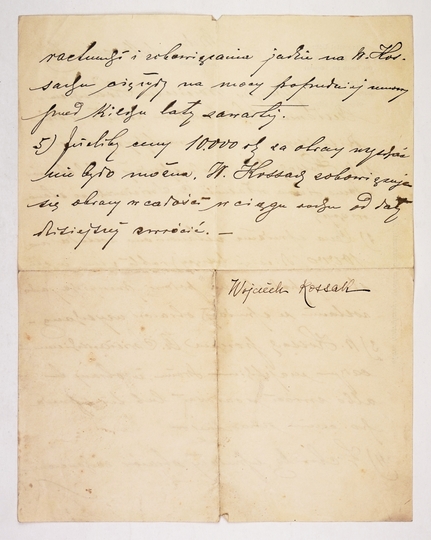 rachunki i zobowiązania jakie na W. Kos-
saku ciężyły na mocy poprzedniej umowy
przed kilku laty zawartej.
5) Jeśliby ceny 10.000 za obrazy uzyskać
nie było można, W. Kossak zobowiązuje
się obrazy w całości w ciągu roku od daty
dzisiejszej zwrócić. —
Wojciech Kossak